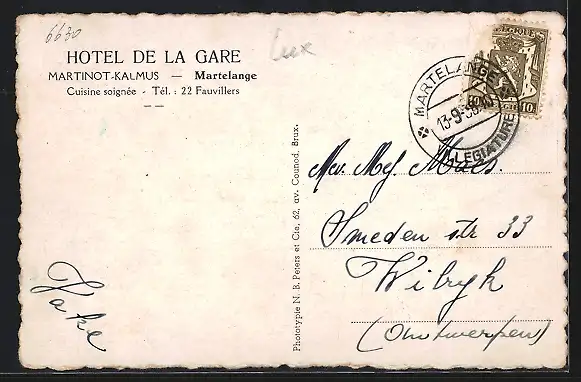 6630
HOTEL DE LA GARE
MARTINOT-KALMUS — Martelange
Cuisine soignée - Tél. : 22 Fauvillers
Lux
BELGIQUE
10
MARTELANGE
13-9-38
VILLEGIATURE
Phototypie N. B. Peters et Cie, 62, av. Counod, Brux.
Mev. Mej. Maes.
Smeden str 33
Wilryk
(Antwerpen)